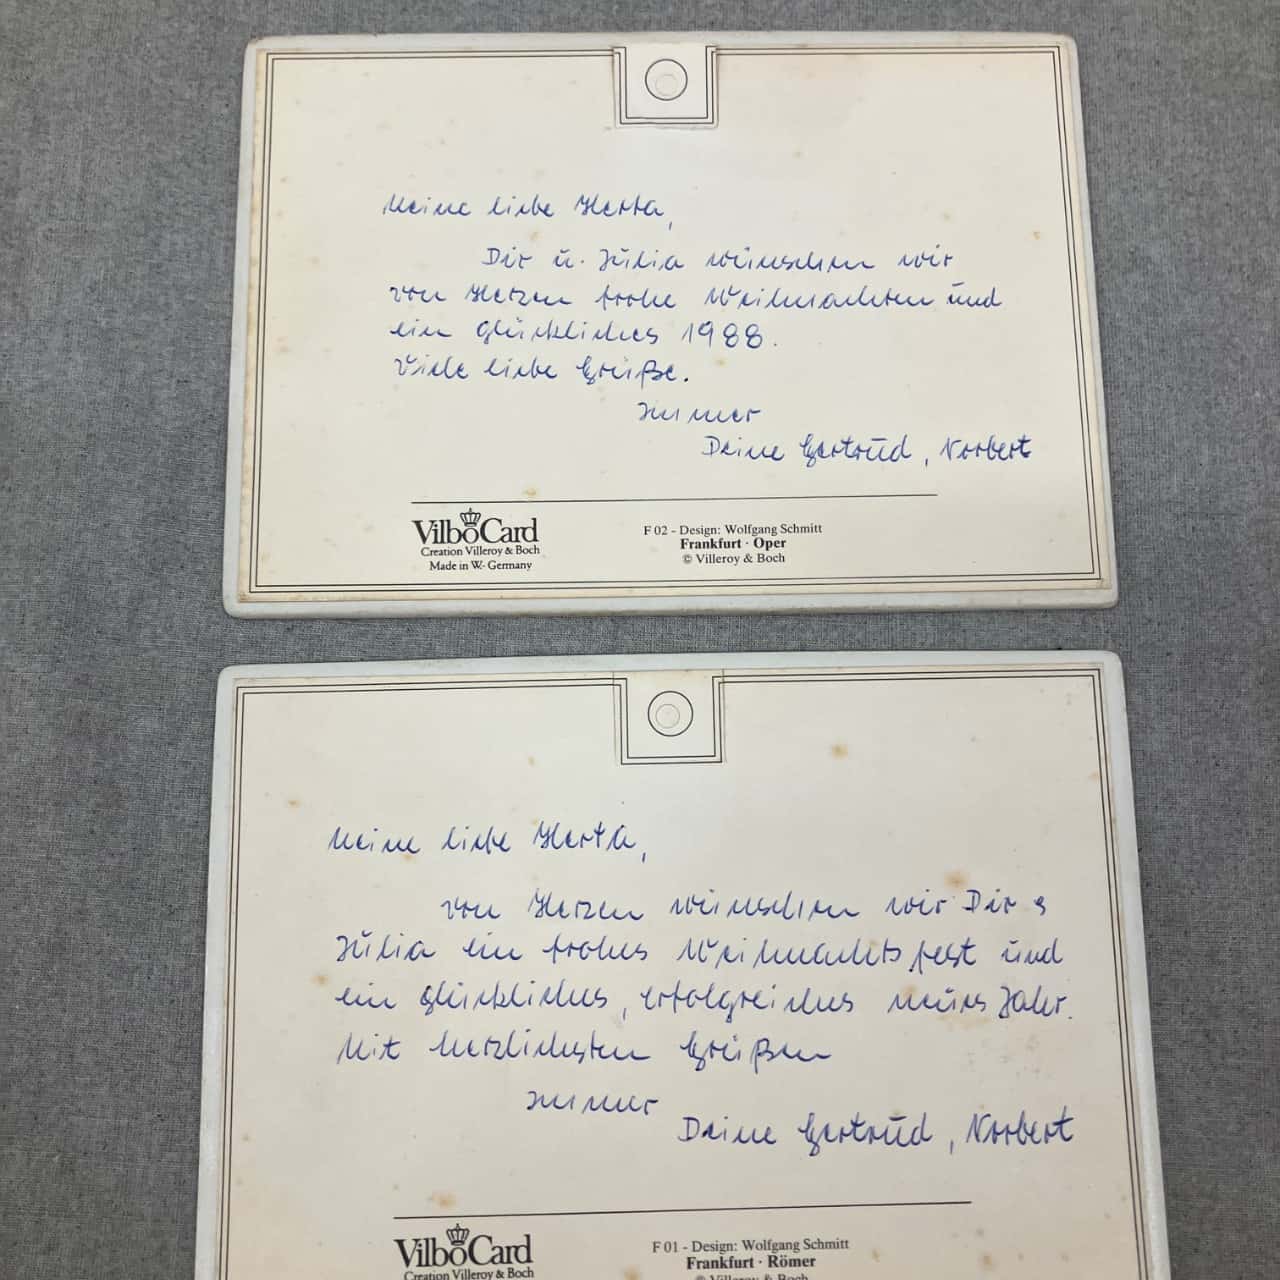 Meine liebe Herta,
Dir u. Julia wünschen wir
von Herzen frohe Weihnachten und
ein glückliches 1988.
Viele liebe Grüße.
Immer
Deine Gertrud, Norbert
VilboCard
Creation Villeroy & Boch
Made in W.- Germany
F 02 - Design: Wolfgang Schmitt
Frankfurt · Oper
© Villeroy & Boch
Meine liebe Herta,
von Herzen wünschen wir Dir &
Julia ein frohes Weihnachtsfest und
ein glückliches, erfolgreiches neues Jahr.
Mit herzlichsten Grüßen
Immer
Deine Gertrud, Norbert
VilboCard
Creation Villeroy & Boch
F 01 - Design: Wolfgang Schmitt
Frankfurt · Römer
© Villeroy & Boch